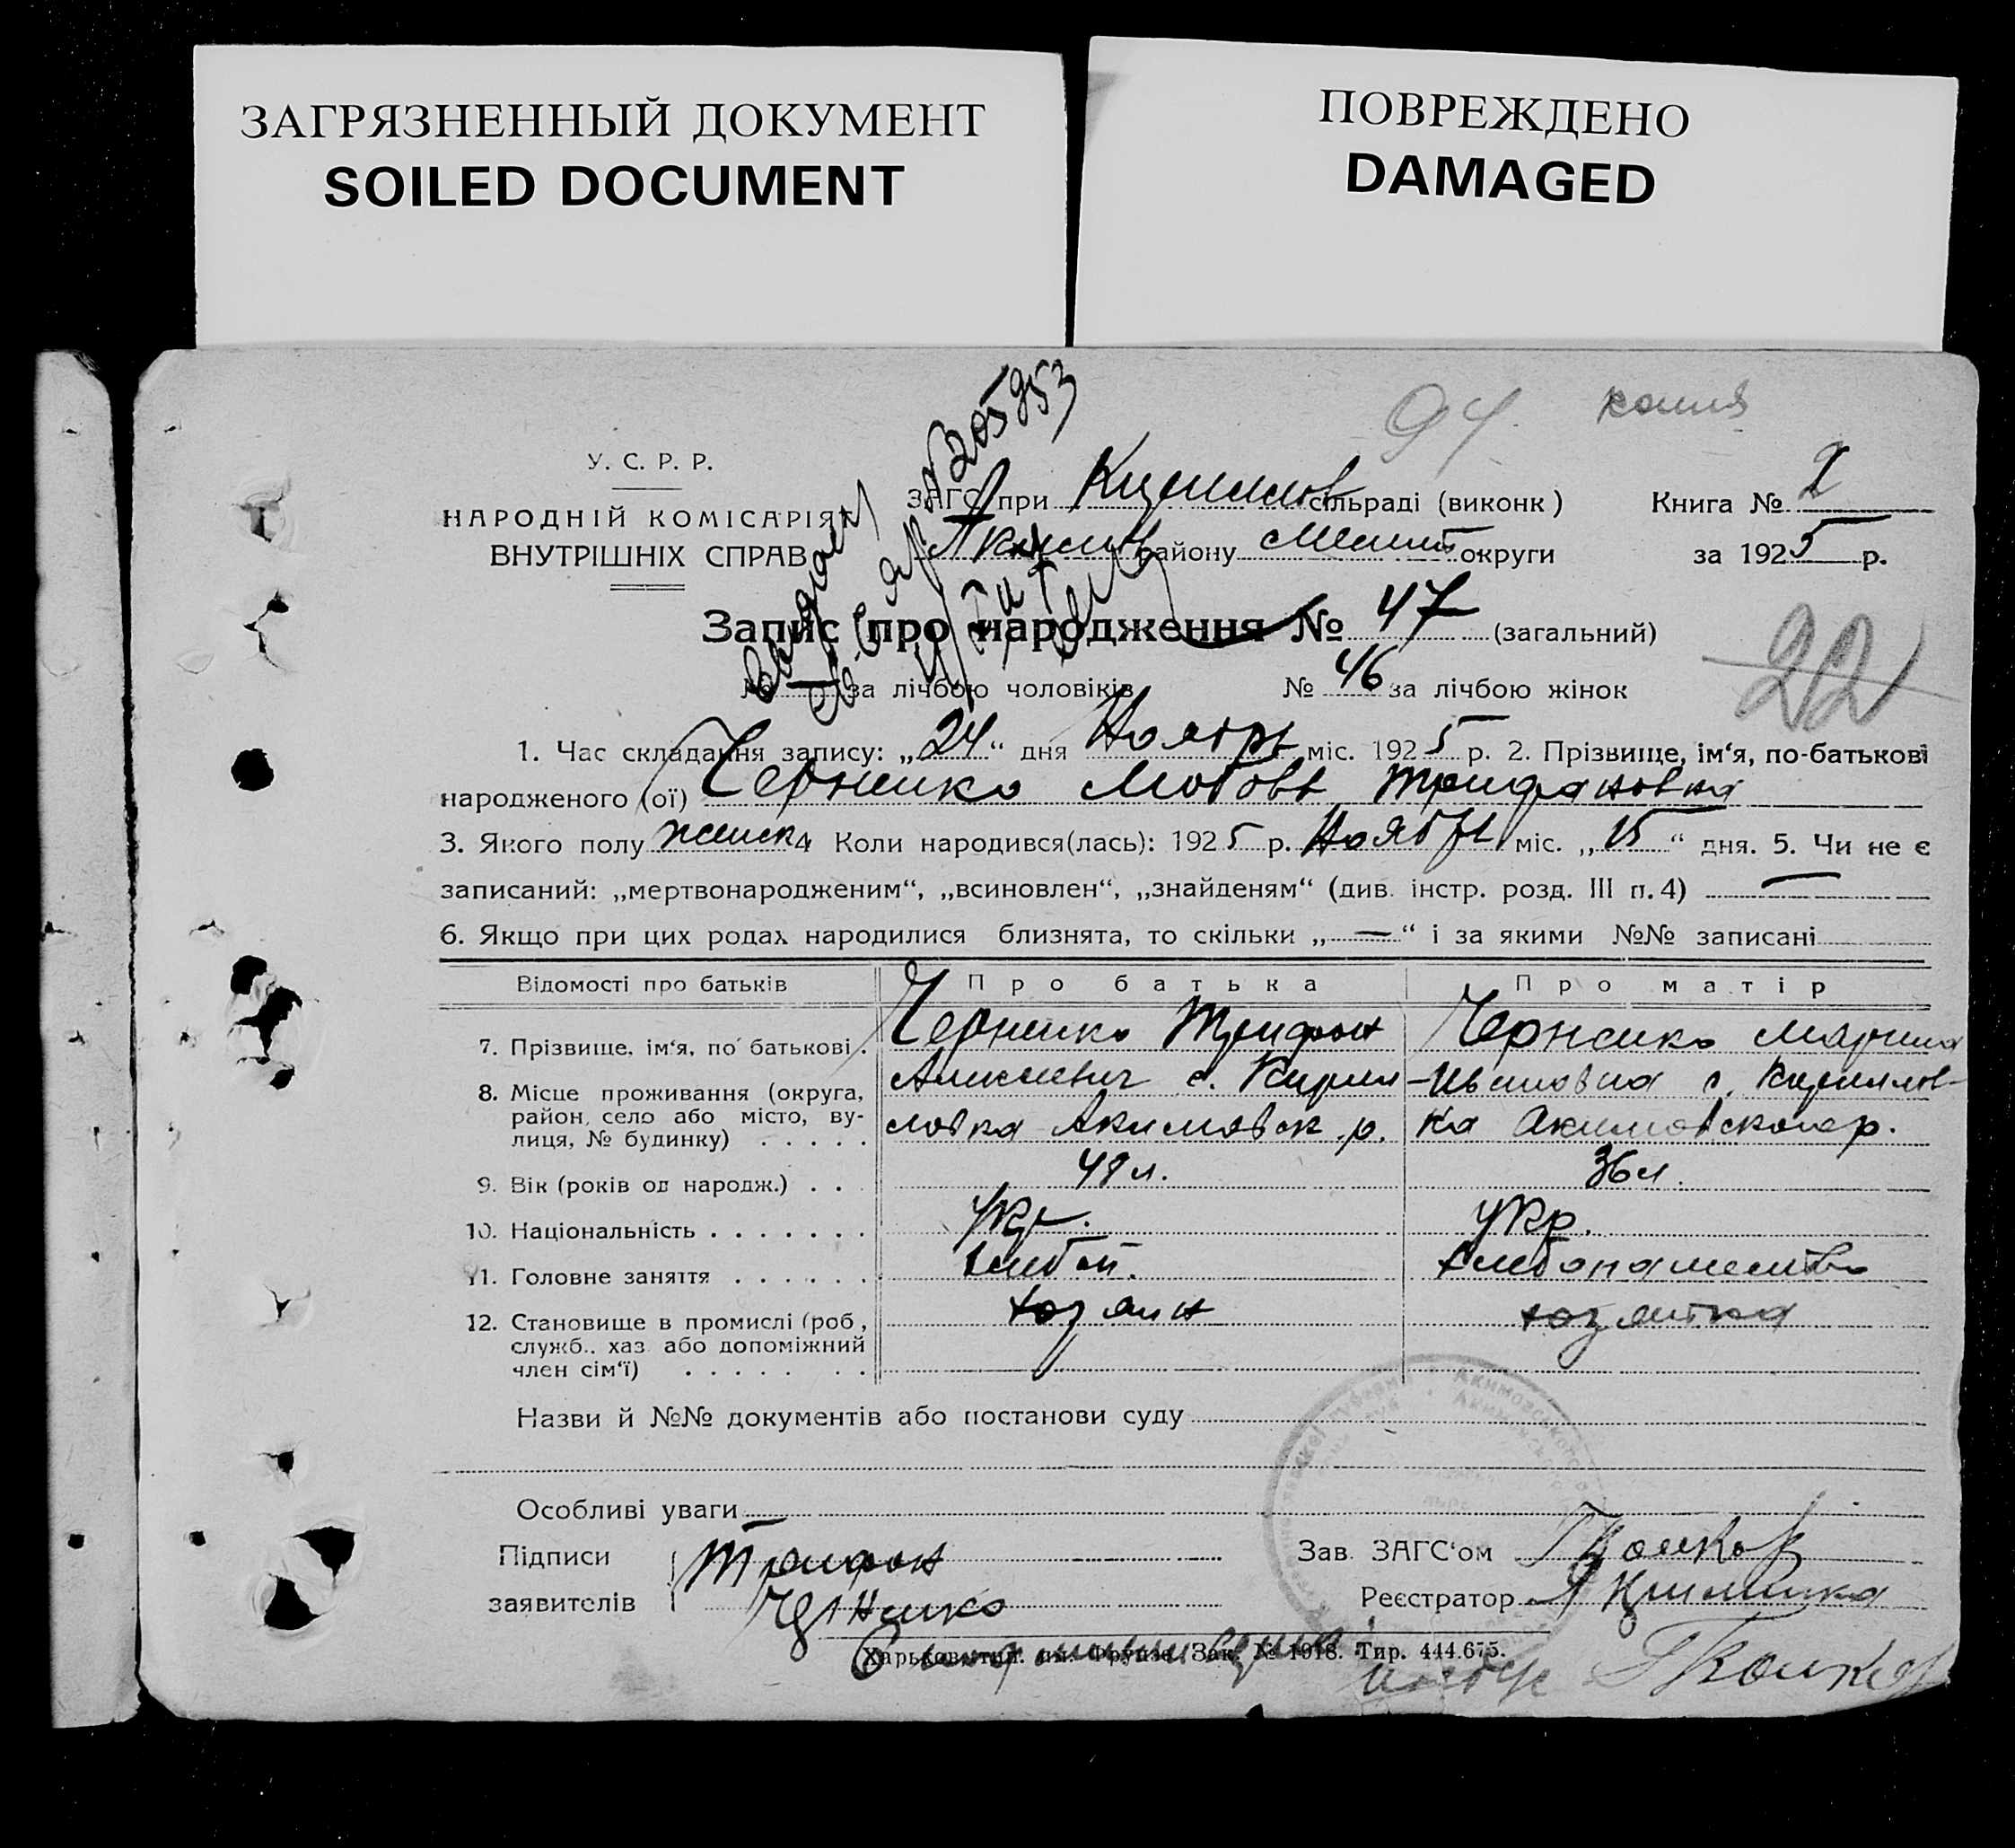 ЗАГРЯЗНЕННЫЙ ДОКУМЕНТ
SOILED DOCUMENT
ПОВРЕЖДЕНО
DAMAGED
94. копия
У. С. Р. Р.
НАРОДНІЙ КОМІСАРІЯТ
ВНУТРІШНІХ СПРАВ
ЗАГС при Кирилловсільраді (виконк)
Книга № 2
Аким району Мелит округи
за 1925 р.
Запис про народження № 47 (загальний)
22
№ — за лічбою чоловіків № 46 за лічбою жінок
1. Час складання запису: „24“ дня Ноябрь міс. 1925 р. 2. Прізвище, ім‘я, по-батькові
народженого (ої) Черненко Любовь Трифановна
3. Якого полу женск 4 Коли народився(лась): 1925 р. Ноябрь міс. „15“ дня. 5. Чи не є
записаний: „мертвонародженим“, „всиновлен“, „знайденям“ (див. інстр. розд. III п. 4) —
6. Якщо при цих родах народилися близнята, то скільки „—“ і за якими №№ записані
Відомості про батьків Про батька Про матір
7. Прізвище, ім‘я, по батькові . Черненко Трифон Черненко Марина
8. Місце проживання (округа, Алексеевич с. Кирил -Ивановна с. Кириллов-
район, село або місто, ву-
лиця, № будинку) . . . . . ловка Акимовск. р. ка Акимовского р.
9. Вік (років од народж.) . . . 48 л. 36 л.
10. Національність . . . . . . . Укр. Укр.
11. Головне заняття . . . . . . Хлебоп. Хлебопашество
12. Становище в промислі (роб., хозяин хозяйка
служб.. хаз або допоміжний
член сім‘ї) . . . . . . .
Назви й №№ документів або постанови суду
Особливі уваги
Підписи Трифон Зав. ЗАГС‘ом
заявителів Черненко Реєстратор
Харьков, тип. им. Фрунзе. Зак. № 1918. Тир. 444.675.